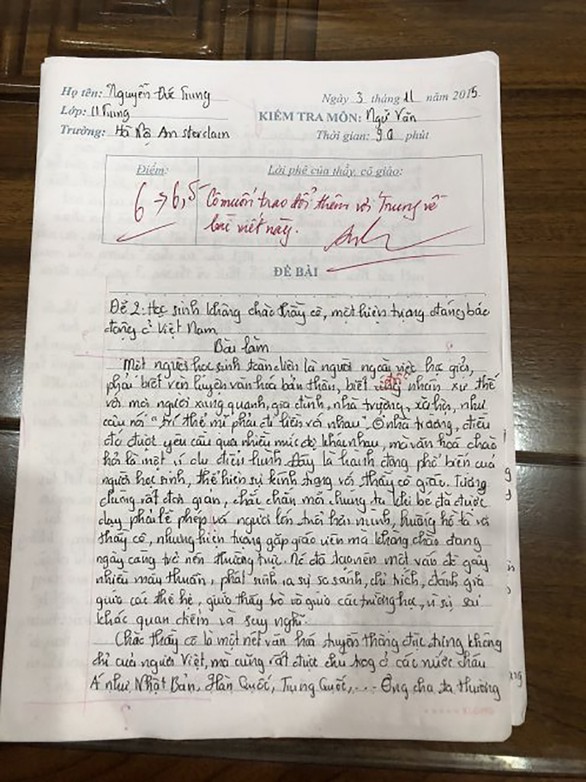 Họ tên: Nguyễn Đức Trung Ngày 3 tháng 11 năm 2015
Lớp: 11 Trung KIỂM TRA MÔN: Ngữ Văn
Trường: Hà Nội Amsterdam Thời gian: 90 phút
Điểm: Lời phê của thầy, cô giáo:
6 → 6,5 Cô muốn trao đổi thêm với Trung về
bài viết này.
ĐỀ BÀI
Đề 2: Học sinh không chào thầy cô, một hiện tượng đáng báo
động ở Việt Nam
Bài làm
Một người học sinh toàn diện là người ngoài việc học giỏi,
phải biết rèn luyện văn hoá bản thân, biết đối nhân xử thế
với mọi người xung quanh, gia đình, nhà trường, xã hội, như
câu nói "Trí thể mĩ phải đi liền với nhau". Ở nhà trường, điều
đó được yêu cầu qua nhiều mức độ khác nhau, mà văn hoá chào
hỏi là một ví dụ điển hình. Đây là hành động phổ biến của
người học sinh, thể hiện sự kính trọng với thầy cô giáo. Tưởng
chừng rất đơn giản, chắc chắn mỗi chúng ta khi bé đã được
dạy phải lễ phép với người lớn tuổi hơn mình, huống hồ là với
thầy cô, nhưng hiện tượng gặp giáo viên mà không chào đang
ngày càng trở nên thường trực. Nó đã tạo nên một vấn đề gây
nhiều mâu thuẫn, phát sinh ra sự so sánh, chỉ trích, đánh giá
giữa các thế hệ, giữa thầy trò và giữa các trường học, vì sự sai
khác quan điểm và suy nghĩ.
Chào thầy cô là một nét văn hoá truyền thống đặc trưng không
chỉ của người Việt, mà cũng rất được chú trọng ở các nước châu
Á như Nhật Bản, Hàn Quốc, Trung Quốc,... Ông cha ta thường